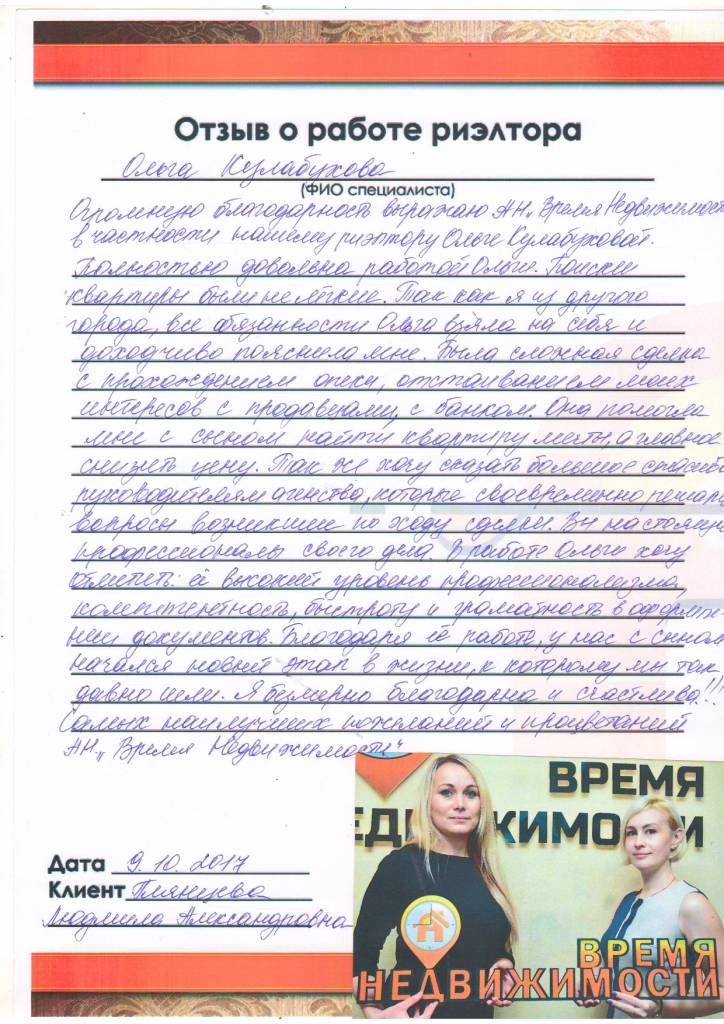 Отзыв о работе риэлтора
Ольга Кулабухова
(ФИО специалиста)
Огромную благодарность выражаю АН „Время Недвижимост
в частности нашему риэлтору Ольге Кулабуховой.
Полностью довольна работой Ольги. Поиски
квартиры были не лёгкие. Так как я из другого
города, все обязанности Ольга взяла на себя и
доходчиво пояснила мне. Была сложная сделка
с прохождением опеки, отстаиванием моих
интересов с продавцами, с банком. Она помогла
мне с сыном найти квартиру мечты, а главное
снизить цену. Так же хочу сказать большое спасибо
руководителям агенства, которые своевременно решал
вопросы возникшие по ходу сделки. Вы настоящи
профессионалы своего дела. В работе Ольги хочу
отметить: её высокий уровень профессионализма,
компетентность, быстроту и грамотность в оформле-
нии документов. Благодаря её работе, у нас с сыном
начался новый этап в жизни, к которому мы так
давно шли. Я безмерно благодарна и счастлива!!!
Самых наилучших пожеланий и процветаний
АН „Время Недвижимости"
ВРЕМЯ
ЕДВИЖИМОСТИ
Дата 9.10.2017
Клиент
Людмила Александровна
ВРЕМЯ
НЕДВИЖИМОСТИ